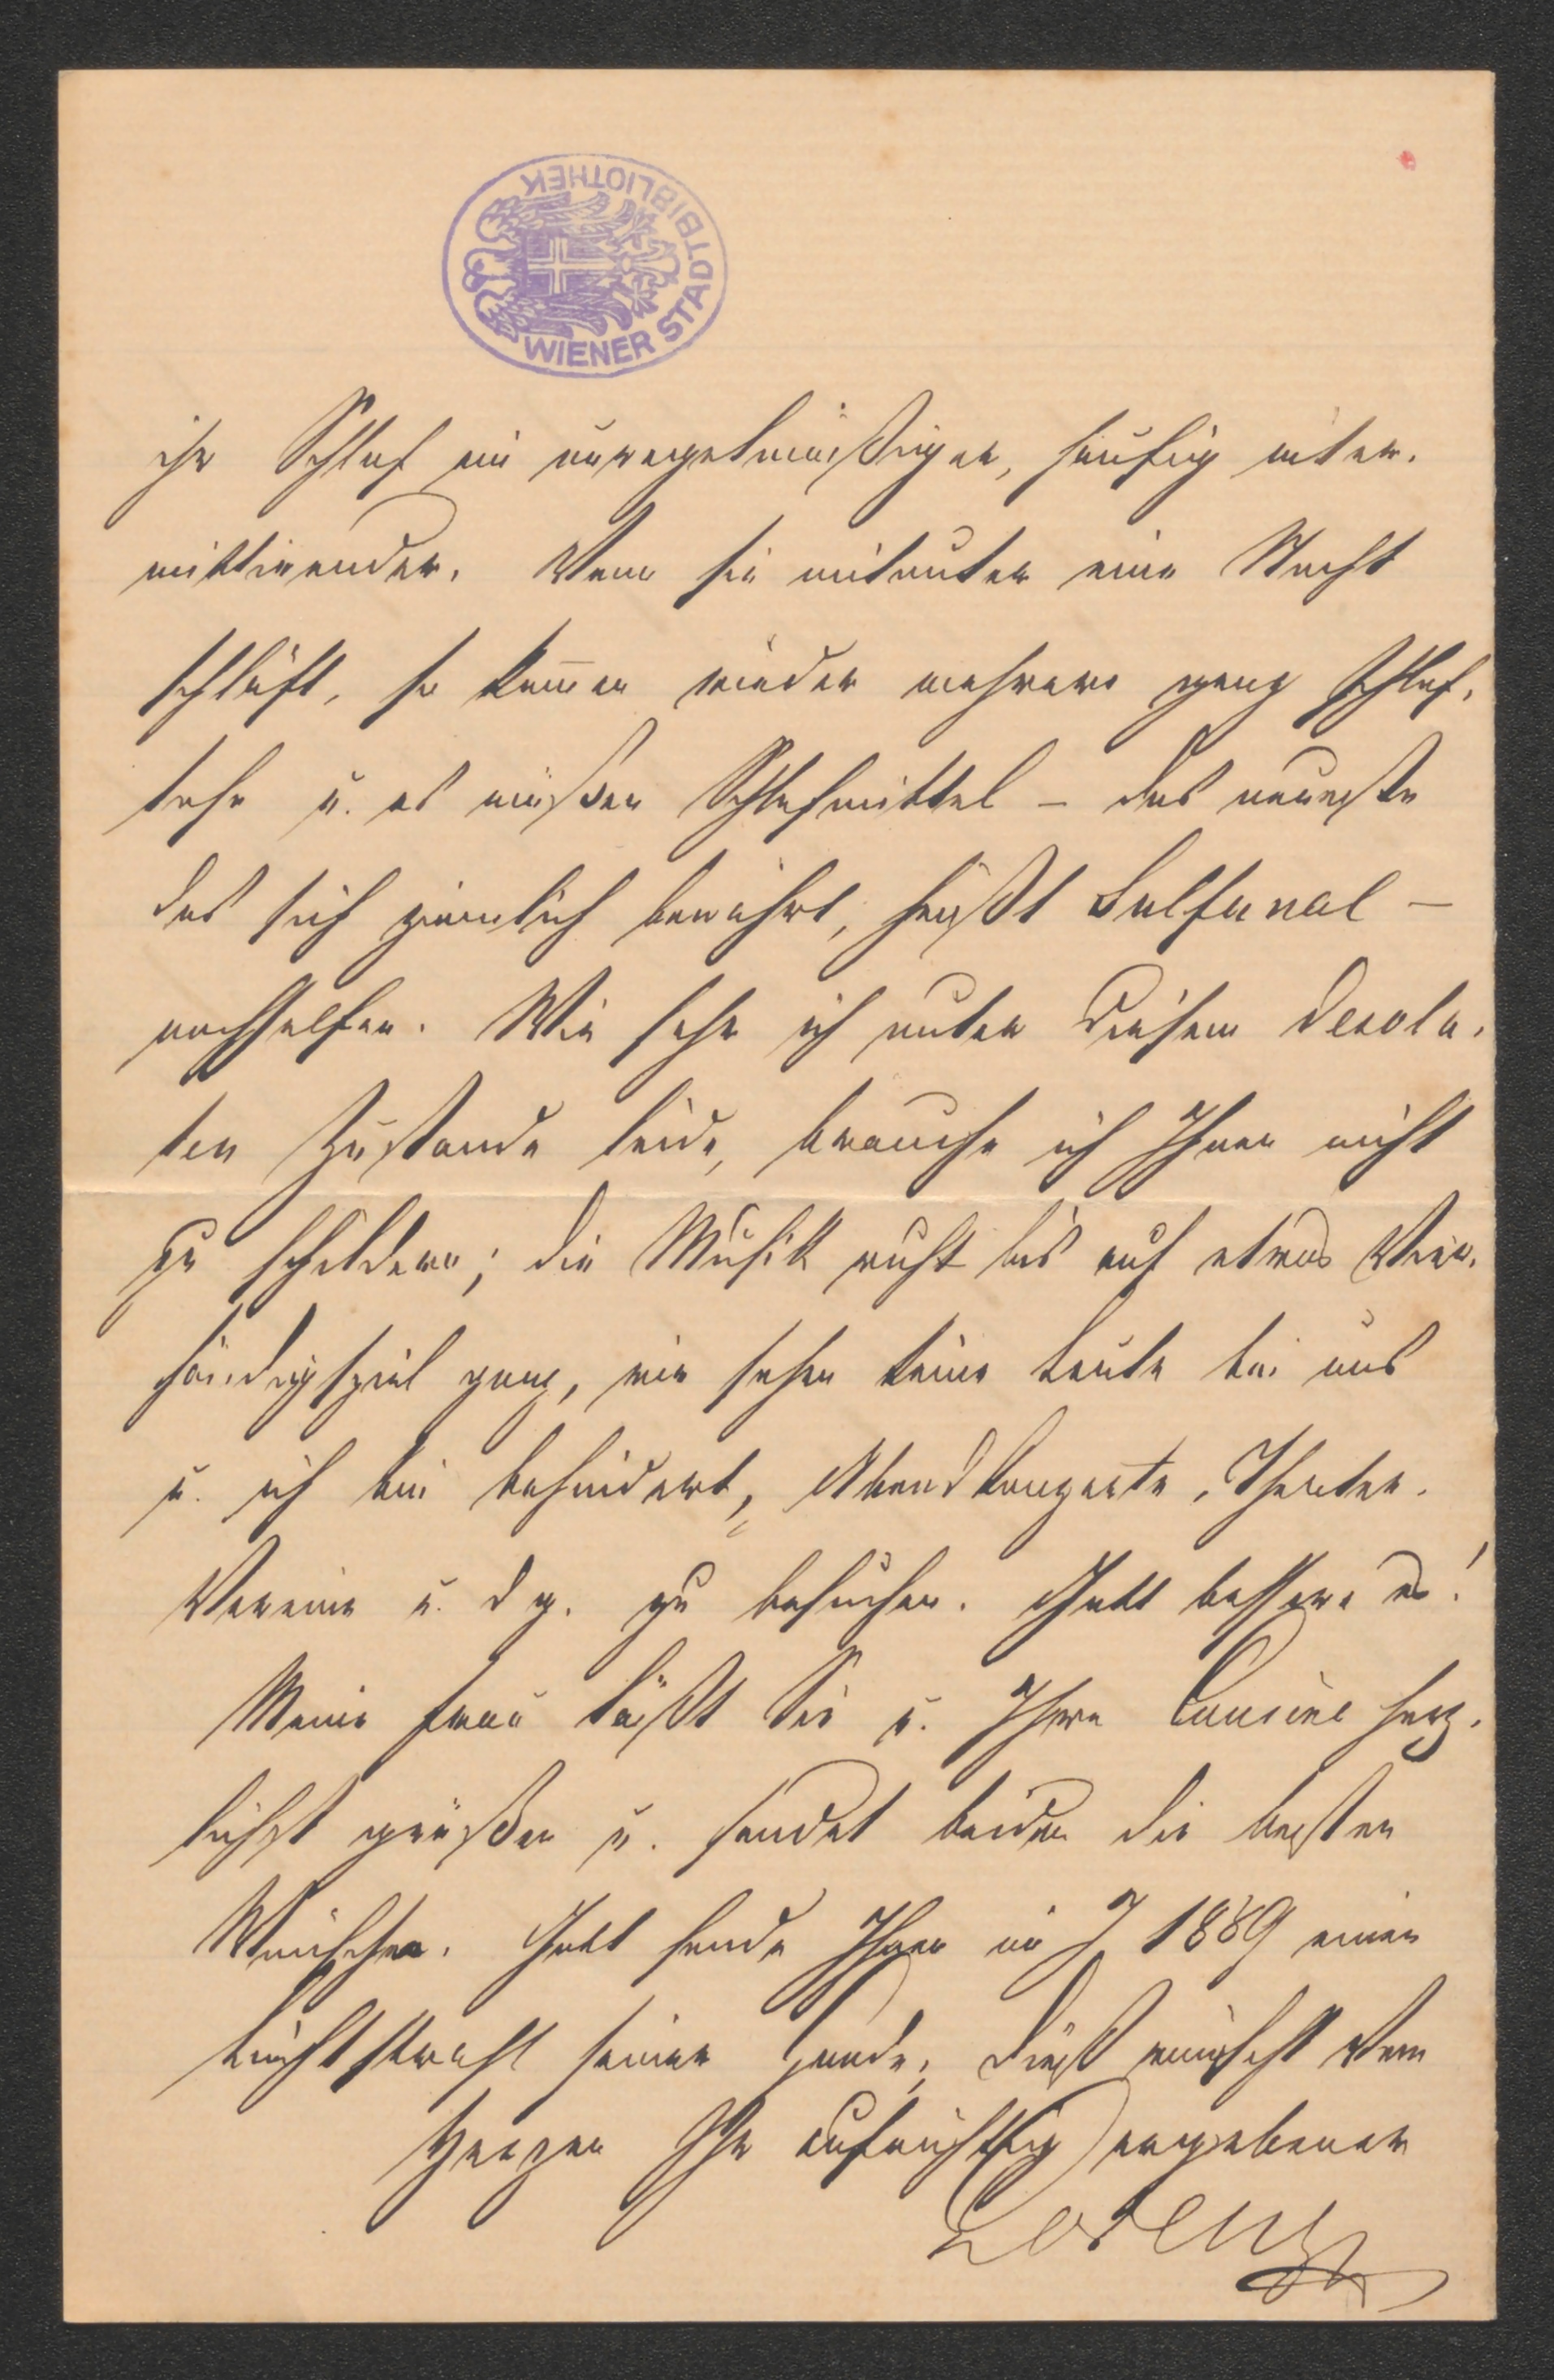 WIENER STADTBIBLIOTHEK
ihr Schlaf ein unregelmäßiger, häufig inter-
mittirender. Wenn sie mitunter eine Nacht
schläft, so kommen wieder mehrere ganz schlaf-
lose u. es müßen Schlafmittel – das neueste
das sich ziemlich bewährt, heißt Sulfonal –
nachhelfen. Wie sehr ich unter diesem desola-
ten Zustande leide, brauche ich Ihnen nicht
zu schildern; die Musik ruht bis auf etwas Vier-
händigspiel ganz, wir sehen keine Leute bei uns
u. ich bin behindert, Abendkonzerte, Theater,
Vereine u. dg. zu besuchen. Gott bessere es!
Meine Frau läßt Sie u. Ihre Cousine herz-
lichst grüßen u. sendet beiden die besten
Wünsche. Gott sende Ihnen im J 1889 einen
Lichtstrahl seiner Gnade; dieß wünscht vom
Herzen Ihr aufrichtig ergebener
Lorenz